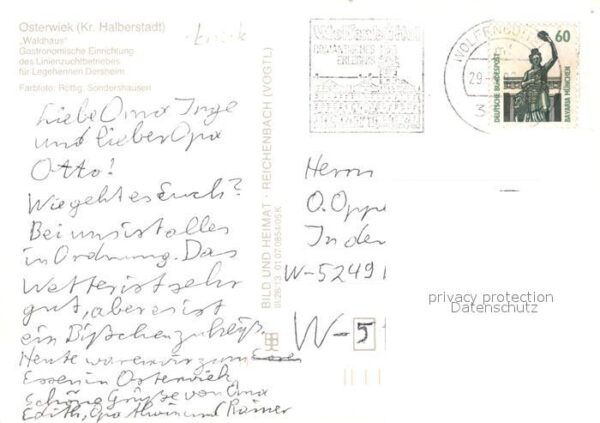 Osterwiek (Kr. Halberstadt)
„Waldhaus"
Gastronomische Einrichtung
des Linienzuchtbetriebes
für Legehennen Dersheim
Farbfoto: Röttig, Sondershausen
Liebe Oma Inge
und lieber Opa
Otto!
Wie geht es Euch?
Bei uns ist alles
in Ordnung. Das
Wetter ist sehr
gut, aber es ist
ein Bißchen zu heiß.
Heute waren wir zum Essen
Essen in Osterwiek
Schöne Grüße von Oma
Edith, Opa Alwin und Rainer
BILD UND HEIMAT · REICHENBACH (VOGTL)
WOLFENBÜTTEL
29
3
60
DEUTSCHE BUNDESPOST
BAVARIA MÜNCHEN
Herrn
O. Oppe
In der
W-5249
W-5
privacy protection
Datenschutz